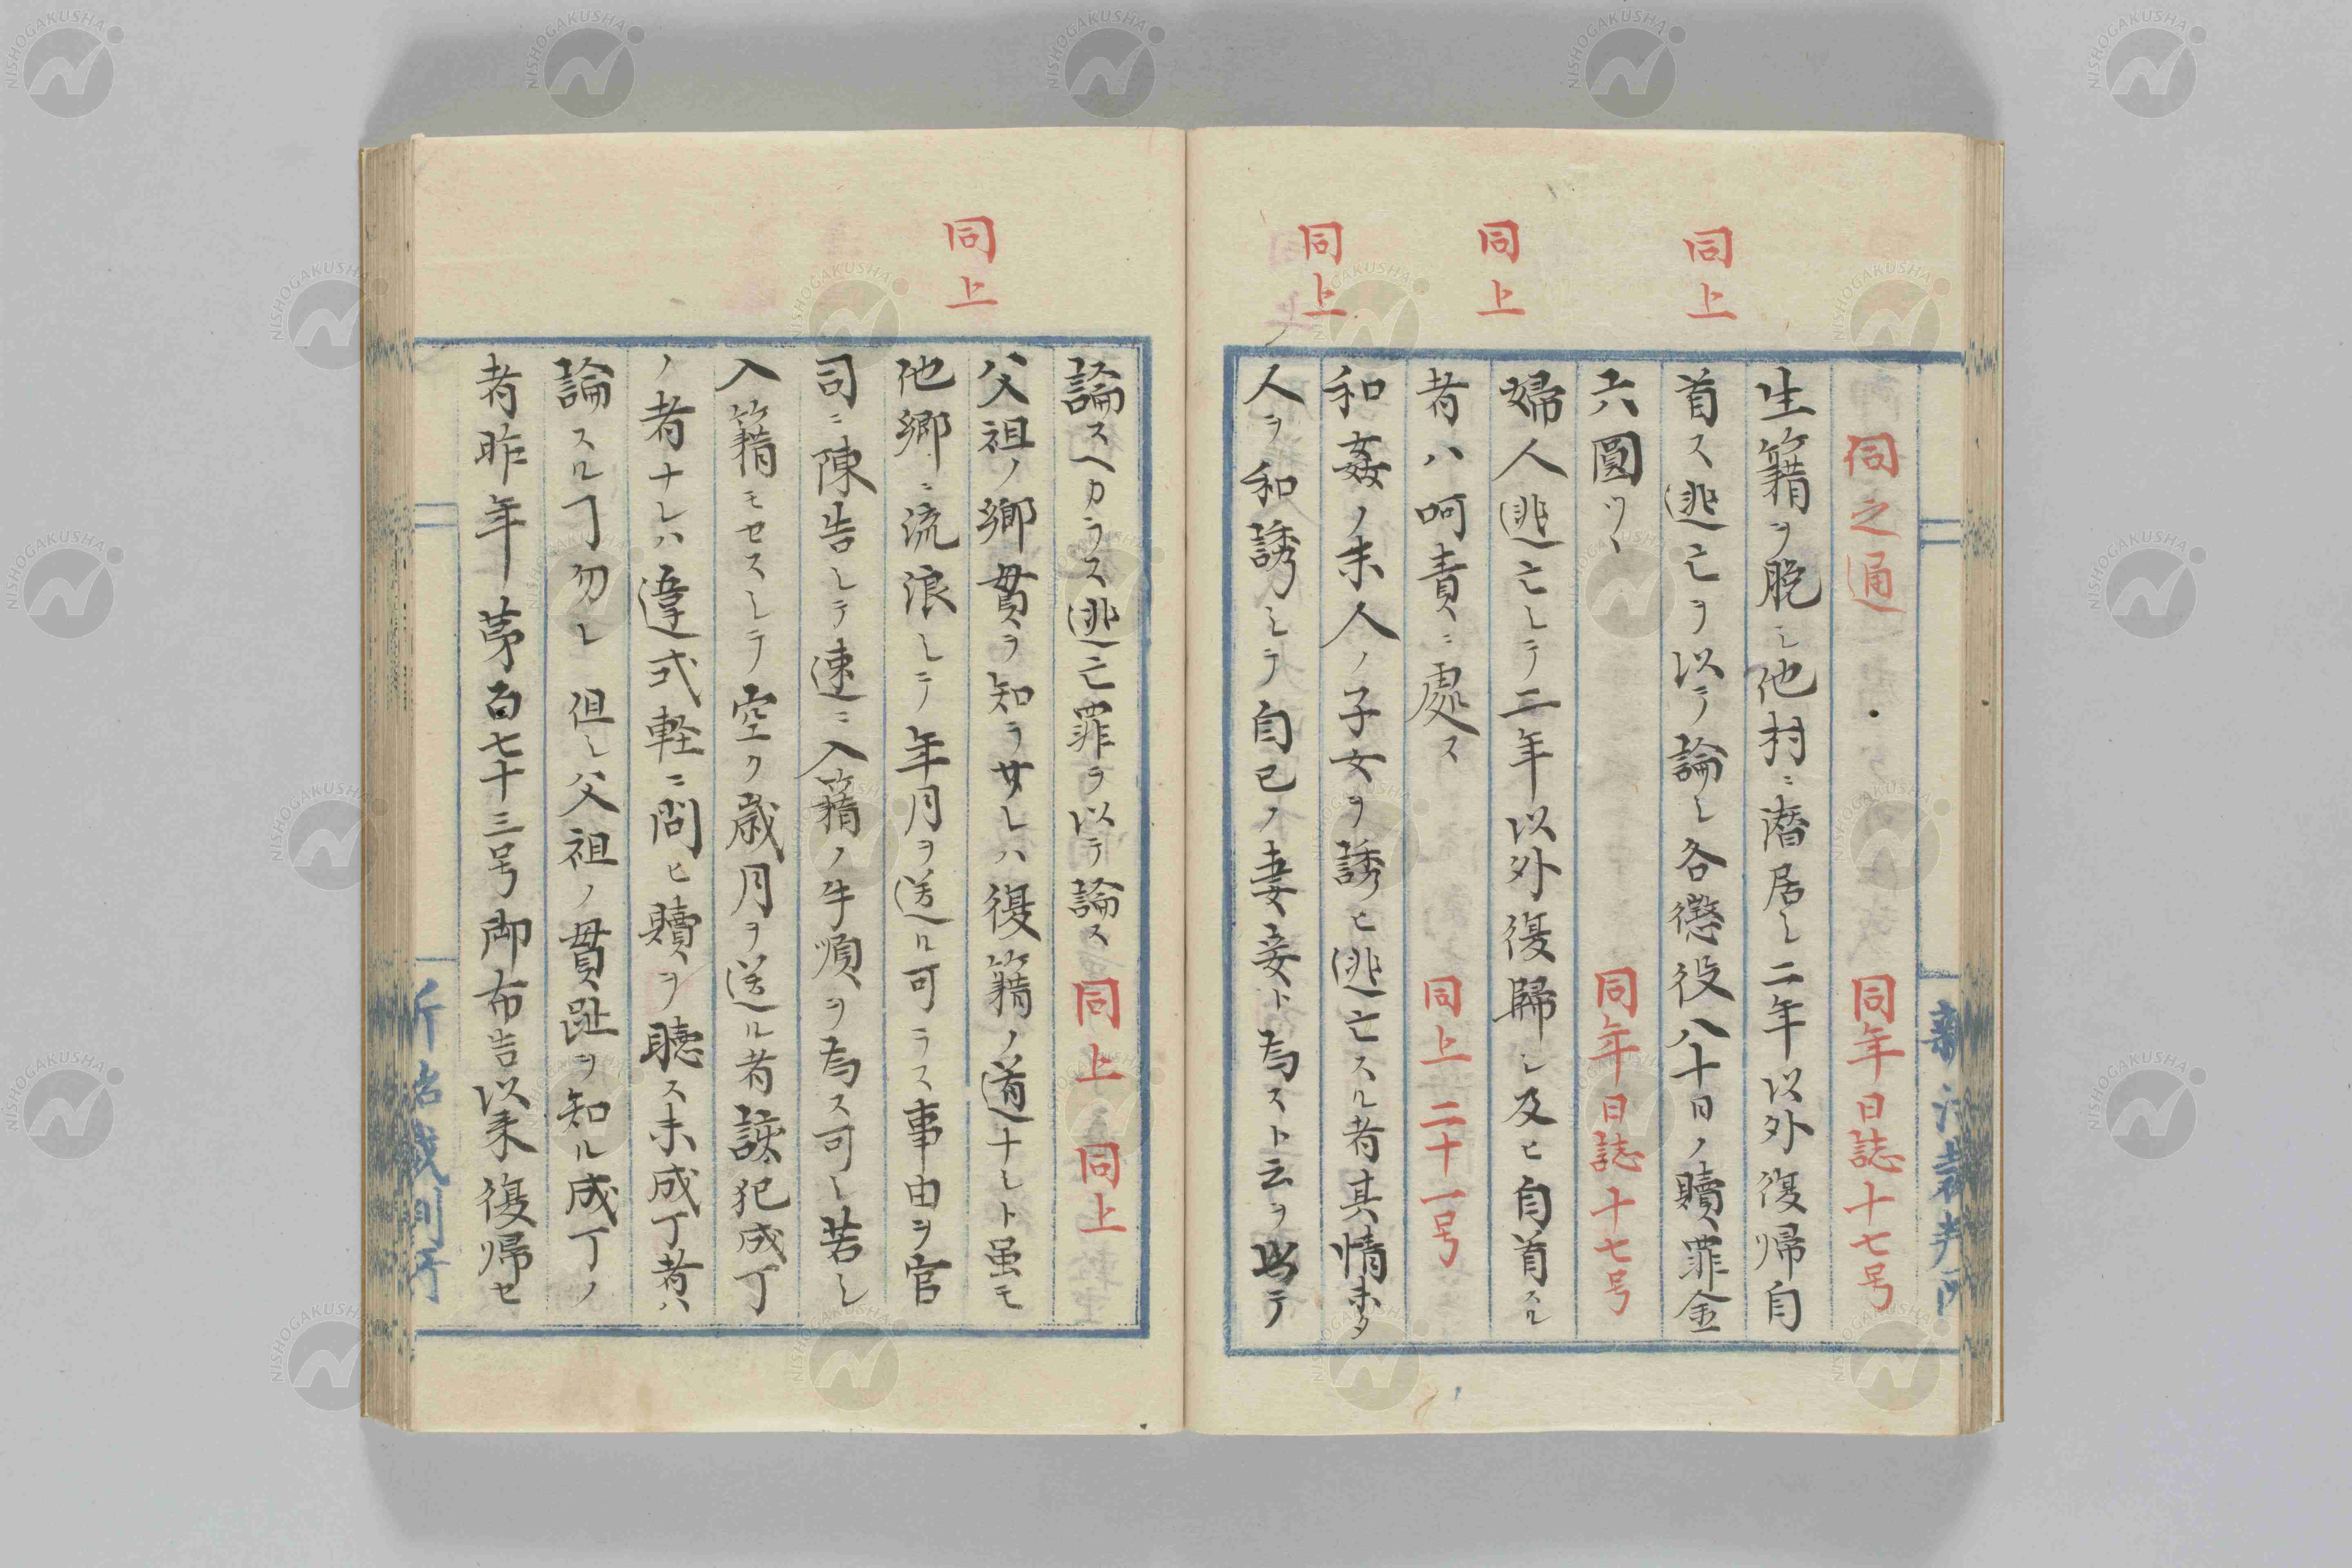 伺之通 同年日誌十七号
同上
生籍ヲ脱シ他村ニ潜居シ二年以外復帰自
首ス逃亡ヲ以テ論シ各懲役八十日ノ贖罪金
六圓ツヽ 同年日誌十七号
同上
婦人逃亡シテ二年以外復歸シ及ヒ自首スル
者ハ呵責ニ處ス 同上二十一号
同上
和姦ノ未人ノ子女ヲ誘ヒ逃亡スル者其情未タ
人ヲ和誘シテ自己ノ妻妾ト為スト云ヲ以テ
論スヘカラス逃亡罪ヲ以テ論ス 同上 同上
同上
父祖ノ郷貫ヲ知ラサレハ復籍ノ道ナシト虽モ
他郷ニ流浪シテ年月ヲ送ル可ラス事由ヲ官
司ニ陳告シテ速ニ入籍ノ手順ヲ為ス可シ若シ
入籍モセスシテ空ク歳月ヲ送ル者該犯成丁
ノ者ナレハ違式軽ニ問ヒ贖ヲ聴ス未成丁者ハ
論スルヿ勿レ 但シ父祖ノ貫趾ヲ知ル成丁ノ
者昨年第百七十三号御布告以来復帰セ
NISHOGAKUSHA